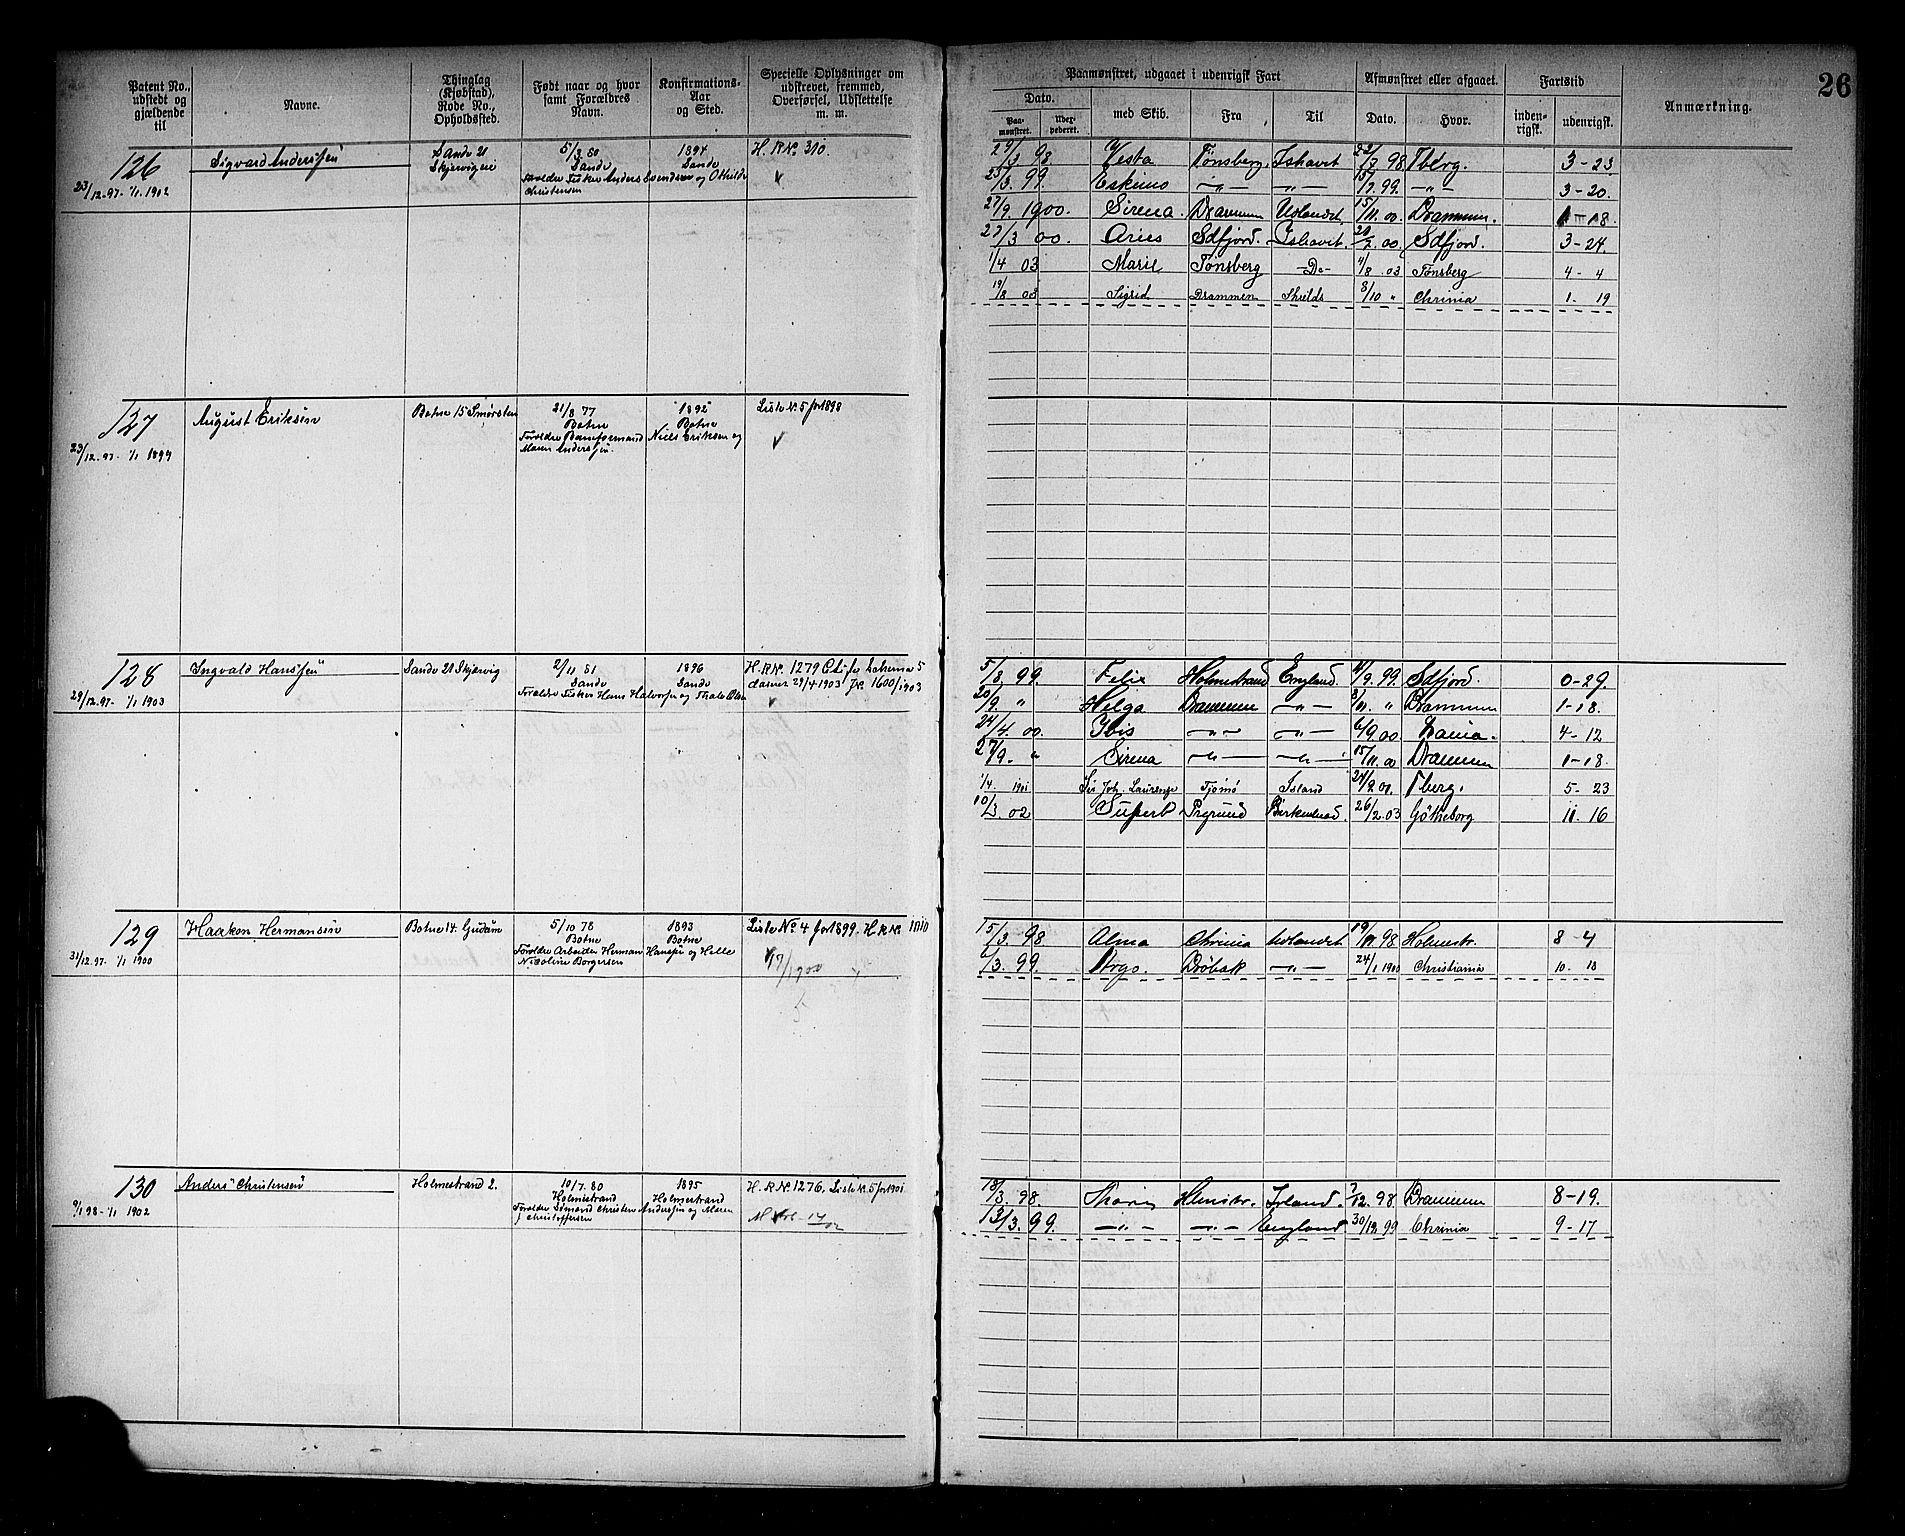 26
Patent No., udstedt og gjældende til
Navne.
Thinglag (Kjøbstad), Rode No., Opholdssted.
Født naar og hvor samt Forældres Navn.
Konfirmations-Aar og Sted.
Specielle Oplysninger om udskrevet, fremmed, Overførsel, Udslettelse m. m.
Paamønstret, udgaaet i udenrigsk Fart
Dato.
Paa-mønstret.
med Skib.
Fra
Til
Afmønstret eller afgaaet.
Dato.
Hvor.
Fartstid
inden-rigsk.
udenrigsk.
Anmærkning.
126
23/12.97- 1/1 1902
Sigvard Anderssen
Sande 21
5/3 80 Sande
Forældre Fisker Anders Svendsen og Othilde Christensen
1894 Sande
H. R No. 310
29/3 98 Vesta Tønsberg Ishavet 98 Tberg. 3-23
25/3. 99 Eskimo -„- -„- 99. -„- 3-20.
27/9. 1900. Sirena. Drammen Udlandet 15/11. 00. Drammen. 1-18.
00. Aries Sdfjord. Ishavet. 00. Sdfjord. 3-24
1/4 03 Marie Tønsberg -Do- 4/8 03 Tønsberg 4-4
19/8 03 Sigrid Drammen Shields 8/10 " Chrinia 1-19
127
23/12.97- 1/1 1899
August Eriksen
Botne 15 Smørsten
21/8 77 Botne
Forældre Baadsformand Niels Eriksen og Maren Anderssen.
1892 Botne
Liste No. 5 for 1898
128
29/12.97- 1/1 1903
Ingvald Hanssen
Sande 21 Skjærvig
2/11 81 Sande
Forældre Fisker Hans Halvorsen og Thale Olsen
1896 Sande
H. R No. 1279
29/4 1903 Jr. 1600/1903
5/8 99 Felix Holmestrand England. 4/9. 99. Sdfjord. 0-29.
20/9. " Helga Drammen -„- 8/11. " Drammen 1-18.
24/4. 00 Ibis -„- -„- 6/9 00 4-12
27/9. " Sirena -„- -„- 15/11. 00 Drammen 1-18.
1/4. 1901 Joh. Laurenze Tjømø Island Tberg. 5-23
10/3. 02 Superb Prgrund Birkenhead. 26/2.03 Götheborg 11-16
129
31/12.97- 1/1 1900
Haakon Hermansen
Botne 14. Gudum
5/10 78 Botne
Forældre Arbeider Herman Hanssen og Helle Nicoline Borgersen
1893 Botne
Liste No. 4 for 1899. H. R No. 1010
17/1900
15/3. 98 Alma Chrinia Udlandet 98 Holmestr. 8-4
6/3. 99. Argo. Drøbak -„- 24/1 1900 Christiania 10. 18
130
9/1 98- 1/1 1902
Anders Christensen
Holmestrand 2.
10/7. 80 Holmestrand
Forældre Sømand Christen Anderssen og Maren J. Christoffersen
1895 Holmestrand
H. R No. 1276. Liste No. 5 for 1901.
18/3. 98. Holmstr. Island. 7/12. 98. Drammen 8-19.
13/3. 99. -„- -„- England. 30/12 99 Chrinia 9-17